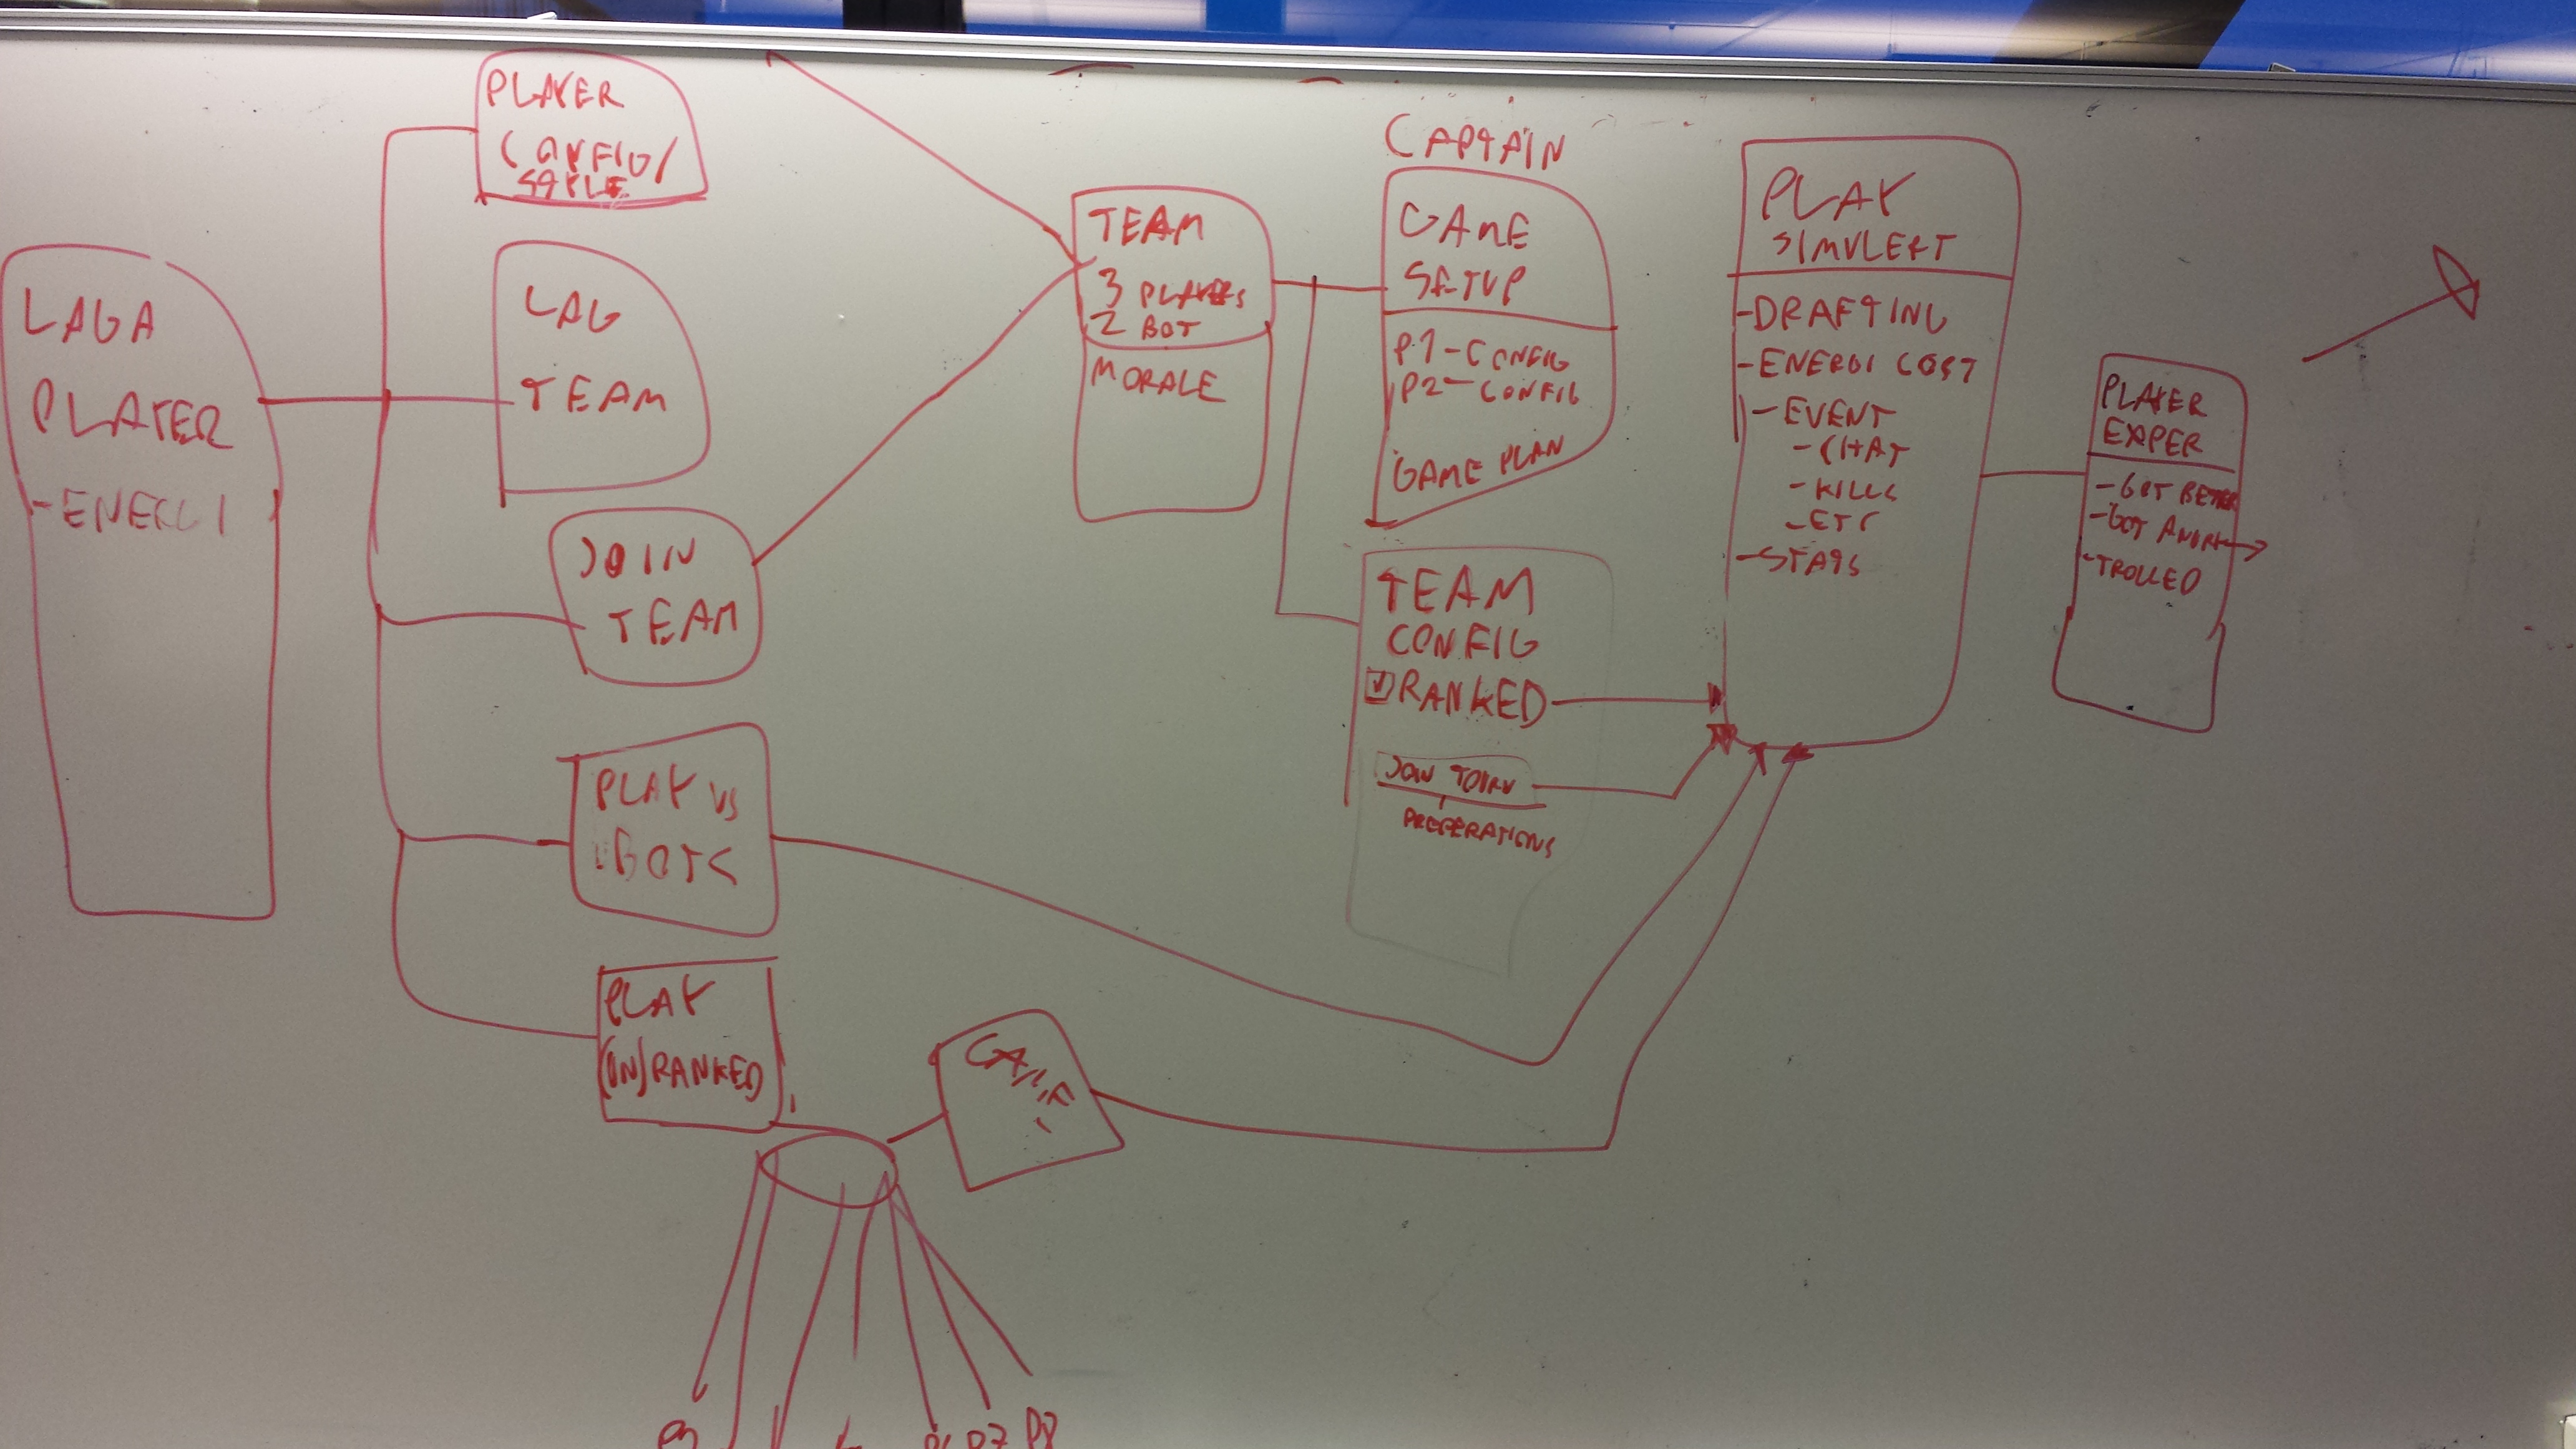 PLAYER
CONFIG/
STYLE
LAGA
PLAYER
-ENERGI
LAG
TEAM
JOIN
TEAM
PLAY VS
BOTS
PLAY
(UN)RANKED
GAME
TEAM
3 PLAYERS
2 BOT
MORALE
CAPTAIN
GAME
SETUP
P1-CONFIG
P2-CONFIG
GAME PLAN
TEAM
CONFIG
RANKED
JOIN TOURN
PREPERATIONS
PLAY
SIMULERT
-DRAFTING
-ENERGI COST
-EVENT
-CHAT
-KILLS
-ETC
-STATS
PLAYER
EXPER
-GOT BETTER
-GOT ANGRY
-TROLLED
P7 P8